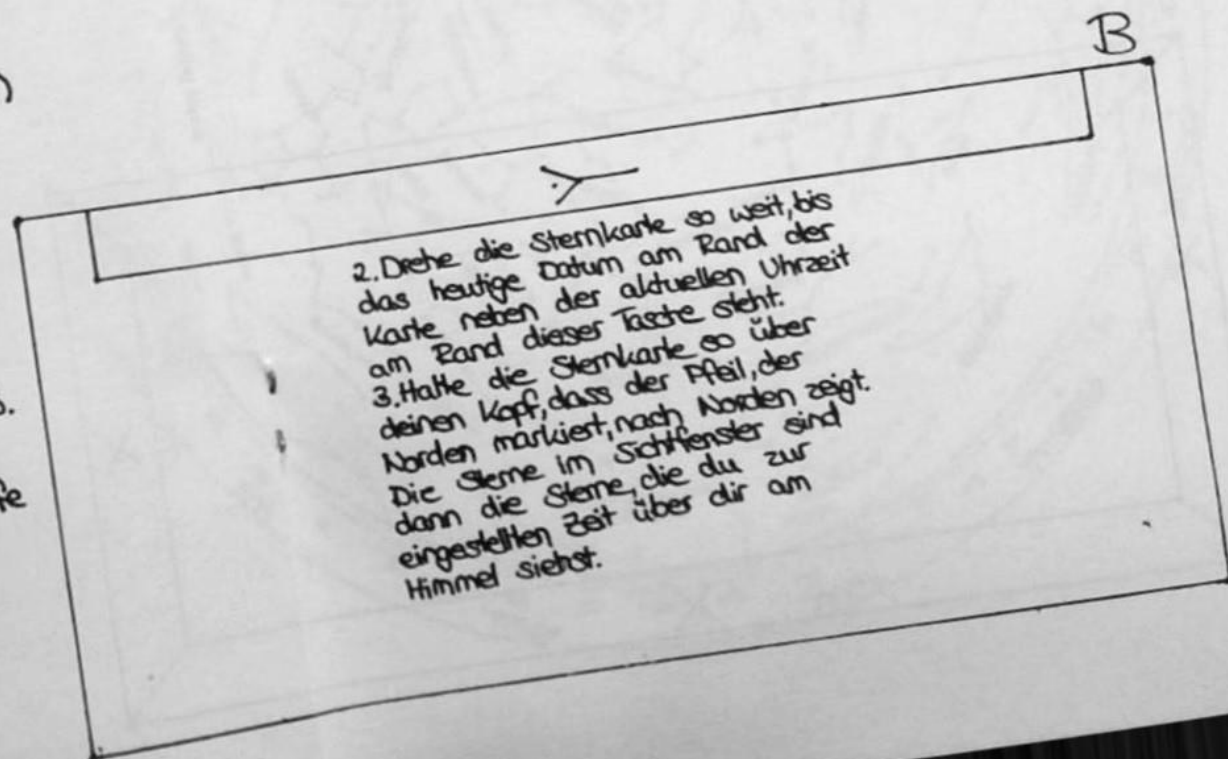 B
2. Drehe die Sternkarte so weit, bis
das heutige Datum am Rand der
Karte neben der aktuellen Uhrzeit
am Rand dieser Tasche steht.
3. Halte die Sternkarte so über
deinen Kopf, dass der Pfeil, der
Norden markiert, nach Norden zeigt.
Die Sterne im Sichtfenster sind
dann die Sterne, die du zur
eingestellten Zeit über dir am
Himmel siehst.